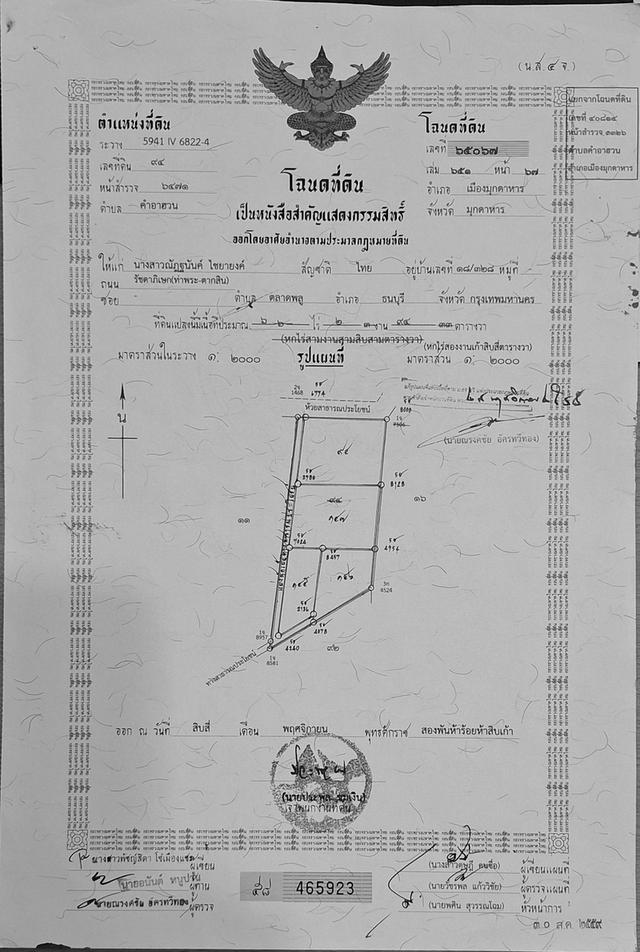 (น.ส.๔ จ.)
ตำแหน่งที่ดิน
ระวาง 5941 IV 6822-4
เลขที่ดิน ๙๔
หน้าสำรวจ ๖๔๗๑
ตำบล คำอาฮวน
โฉนดที่ดิน
เลขที่ ๖๕๐๖๗
เล่ม ๖๕๑ หน้า ๖๗
อำเภอ เมืองมุกดาหาร
จังหวัด มุกดาหาร
แยกจากโฉนดที่ดิน
เลขที่ ๔๐๘๑๔
หน้าสำรวจ ๓๓๒๖
ตำบลคำอาฮวน
อำเภอเมืองมุกดาหาร
โฉนดที่ดิน
เป็นหนังสือสำคัญแสดงกรรมสิทธิ์
ออกโดยอาศัยอำนาจตามประมวลกฎหมายที่ดิน
ให้แก่ นางสาวณัฏฐนันค์ ไชยายงค์ สัญชาติ ไทย อยู่บ้านเลขที่ ๑๘/๓๒๘ หมู่ที่
ถนน รัชดาภิเษก(ท่าพระ-ตากสิน)
ซอย ตำบล ตลาดพลู อำเภอ ธนบุรี จังหวัด กรุงเทพมหานคร
ที่ดินแปลงนี้มีเนื้อที่ประมาณ ๖ ๖ ไร่ ๒ ๓ งาน ๙๔ ๓๓ ตารางวา
(หกไร่สามงานสามสิบสามตารางวา) (หกไร่สองงานเก้าสิบสี่ตารางวา)
มาตราส่วนในระวาง ๑: ๒๐๐๐ รูปแผนที่ มาตราส่วน ๑: ๒๐๐๐
(นายณรงคชัย อัครทวีทอง)
น
ห้วยสาธารณประโยชน์
๙๔
๙๔
๑๔๗
๑๑
๑๖
๑๔๕
๑๔๖
๙๒
ทางสาธารณประโยชน์
ออก ณ วันที่ สิบสี่ เดือน พฤศจิกายน พุทธศักราช สองพันห้าร้อยห้าสิบเก้า
เจ้าพนักงานที่ดิน
ผู้เขียน
ผู้ทาน
นายณรงคชัย อัครทวีทอง ผู้ตรวจ
๕๘ 465923
ผู้เขียนแผนที่
(นายวัชรพล แก้ววิชัย) ผู้ตรวจแผนที่
(นายพศิน สุวรรณโฉม) หัวหน้าการ
๓๐ ส.ค. ๒๕๕๙